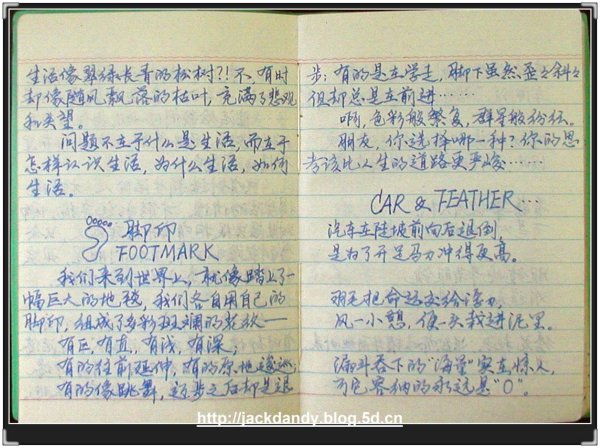 生活像翠绿长青的松树?! 不，有时
却像随风飘落的枯叶，充满了悲观
和失望。
问题不在于什么是生活，而在于
怎样认识生活，为什么生活，如何
生活。
脚印
FOOTMARK
我们来到世界上，就像踏上了一
幅巨大的地毯，我们各自用自己的
脚印，组成了多彩斑斓的花纹——
有巨，有直，有浅，有深，
有的往前延伸，有的原地逡巡，
有的像跳舞，这步之后却是退
步；有的是在学走，脚下虽然歪々斜々
但却总是在前进……
啊，色彩般繁复，群星般纷纭。
朋友，你选择哪一种？你的思
考该比人生的道路更严峻……
CAR & FEATHER…
汽车在陡坡前向后退倒，
是为了开足马力冲得更高。
羽毛把命运交给浮力，
风一小憩，便一头栽进泥里。
漏斗吞下的“海量”实在惊人，
而它容纳的永远是“0”。
http://jackdandy.blog.5d.cn